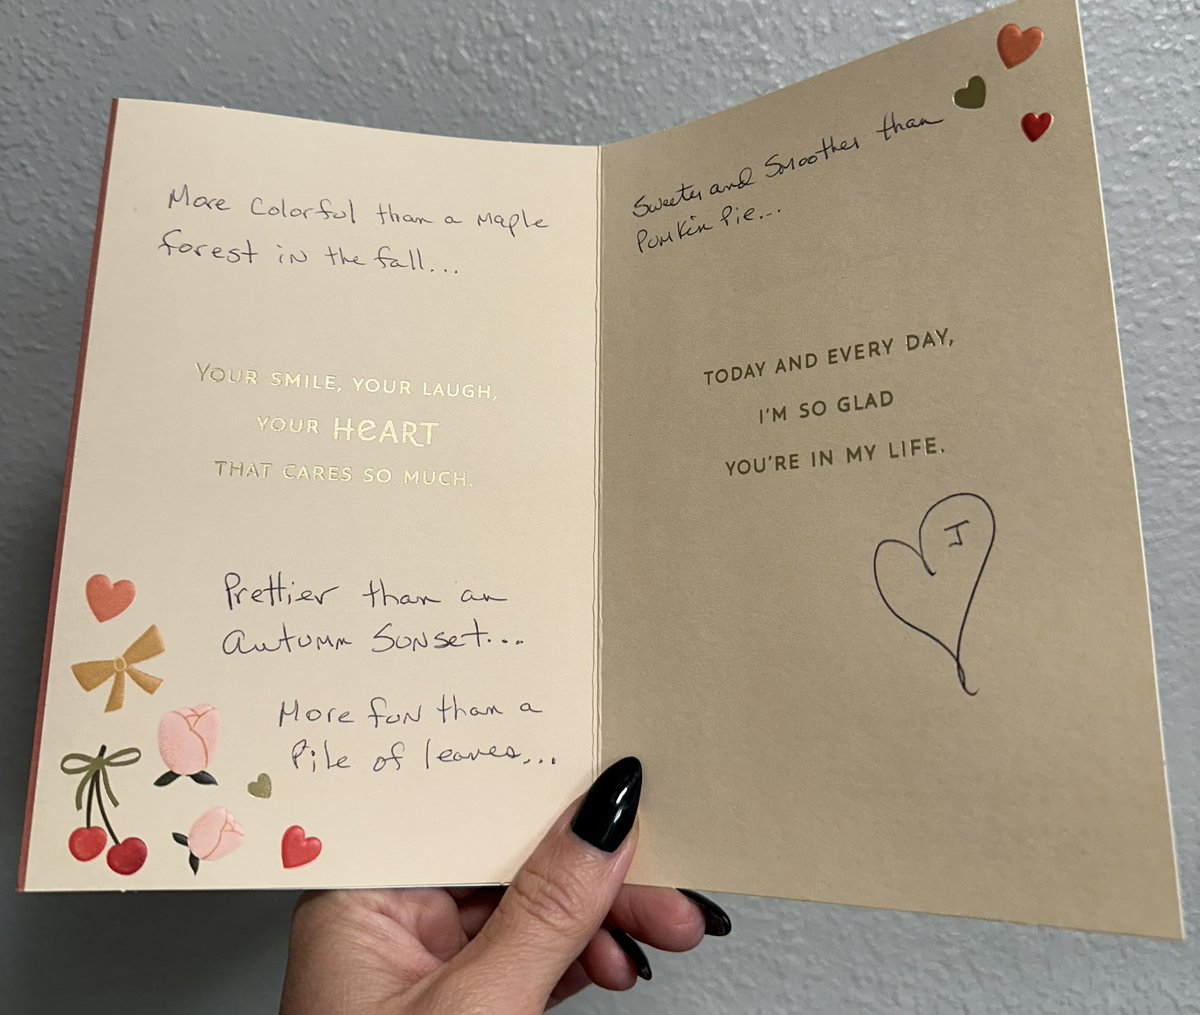 More Colorful than a Maple
forest in the fall...
YOUR SMILE, YOUR LAUGH,
YOUR HEART
THAT CARES SO MUCH.
Prettier than an
Autumn Sunset...
More fun than a
Pile of leaves...
Sweeter and Smoother than
Pumkin Pie...
TODAY AND EVERY DAY,
I'M SO GLAD
YOU'RE IN MY LIFE.
J